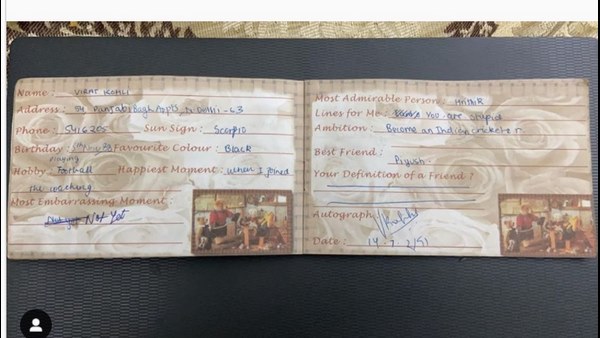 Name : VIRAT KOHLI
Address : 54 Punjabi Bagh Appts N. Delhi - 63
Phone : 5416205 Sun Sign : Scorpio
Birthday : Favourite Colour : Black
Hobby : Playing Football Happiest Moment : When I joined
the coaching
Most Embarrassing Moment :
Not Yet
Most Admirable Person :
Lines for Me : You are stupid
Ambition : Become an Indian cricketer
Best Friend :
Piyush
Your Definition of a Friend ?
Autograph :
Date :